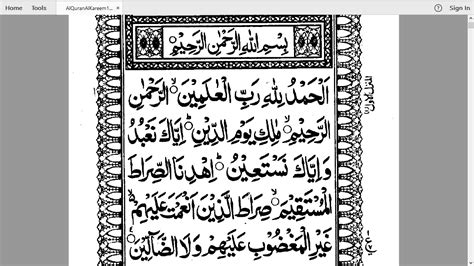 AlQuranAlKareem1...
Sign In
بِسْمِ اللهِ الرَّحْمٰنِ الرَّحِيْمِ
اَلْحَمْدُ لِلّٰهِ رَبِّ الْعٰلَمِيْنَ ۙ الرَّحْمٰنِ
الرَّحِيْمِ ۙ مٰلِكِ يَوْمِ الدِّيْنِ ؕ اِيَّاكَ نَعْبُدُ
وَاِيَّاكَ نَسْتَعِيْنُ ؕ اِهْدِنَا الصِّرَاطَ
الْمُسْتَقِيْمَ ۙ صِرَاطَ الَّذِيْنَ اَنْعَمْتَ عَلَيْهِمْ ۙ
غَيْرِ الْمَغْضُوْبِ عَلَيْهِمْ وَلَا الضَّآلِّيْنَ